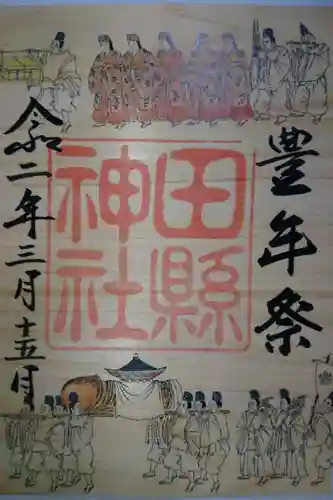 豊年祭
田縣
神社
令和二年三月十五日